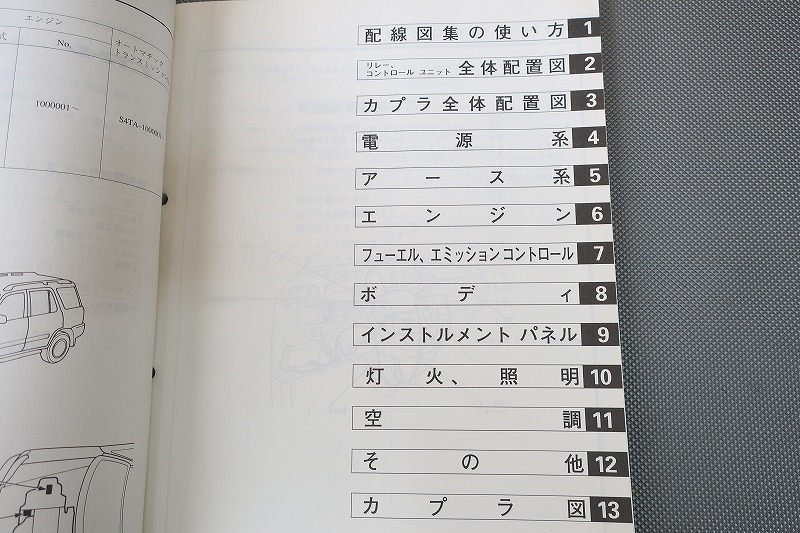 エンジン
式
No.
オートマチック
トランスミッション
1000001～
S4TA-1000001～
配線図集の使い方 1
リレー、
コントロール ユニット 全体配置図 2
カプラ全体配置図 3
電源系 4
アース系 5
エンジン 6
フューエル、エミッションコントロール 7
ボディ 8
インストルメント パネル 9
灯火、照明 10
空調 11
その他 12
カプラ図 13